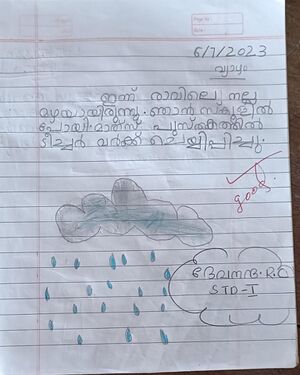 Page No:
Date:
6/7/2023
വ്യാഴം
ഇന്ന് രാവിലെ നല്ല
മഴയായിരുന്നു. ഞാൻ സ്കൂളിൽ
പോയി. മാത്സ് പുസ്തകത്തിൽ
ടീച്ചർ വർക്ക് ചെയ്യിപ്പിച്ചു.
good
ദേവനന്ദ. R.C
STD-I